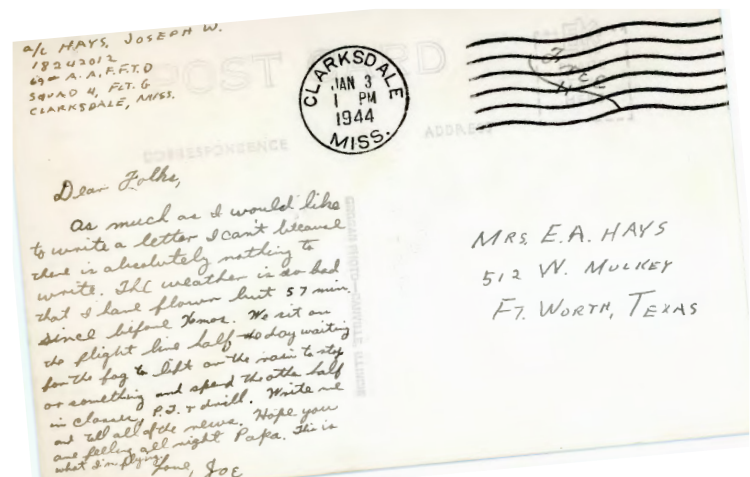 a/c HAYS, JOSEPH W.
18242012
A.A.F.F.T.D
SQUAD 4, FLT. G
CLARKSDALE, MISS.
POST CARD
CLARKSDALE
JAN 3
1 PM
1944
MISS.
FREE
CORRESPONDENCE
ADDRESS
Dear Folks,
As much as I would like
to write a letter I can't because
there is absolutely nothing to
write. The weather is so bad
that I have flown but 57 min.
since before Xmas. We sit on
the flight line half the day waiting
for the fog to lift or the rain to stop
or something and spend the other half
in classes, P.T. & drill. Write me
and tell all of the news. Hope you
are feeling all right Papa. This is
what I'm flying.
Love, JOE
MRS. E.A. HAYS
512 W. MULKEY
FT. WORTH, TEXAS